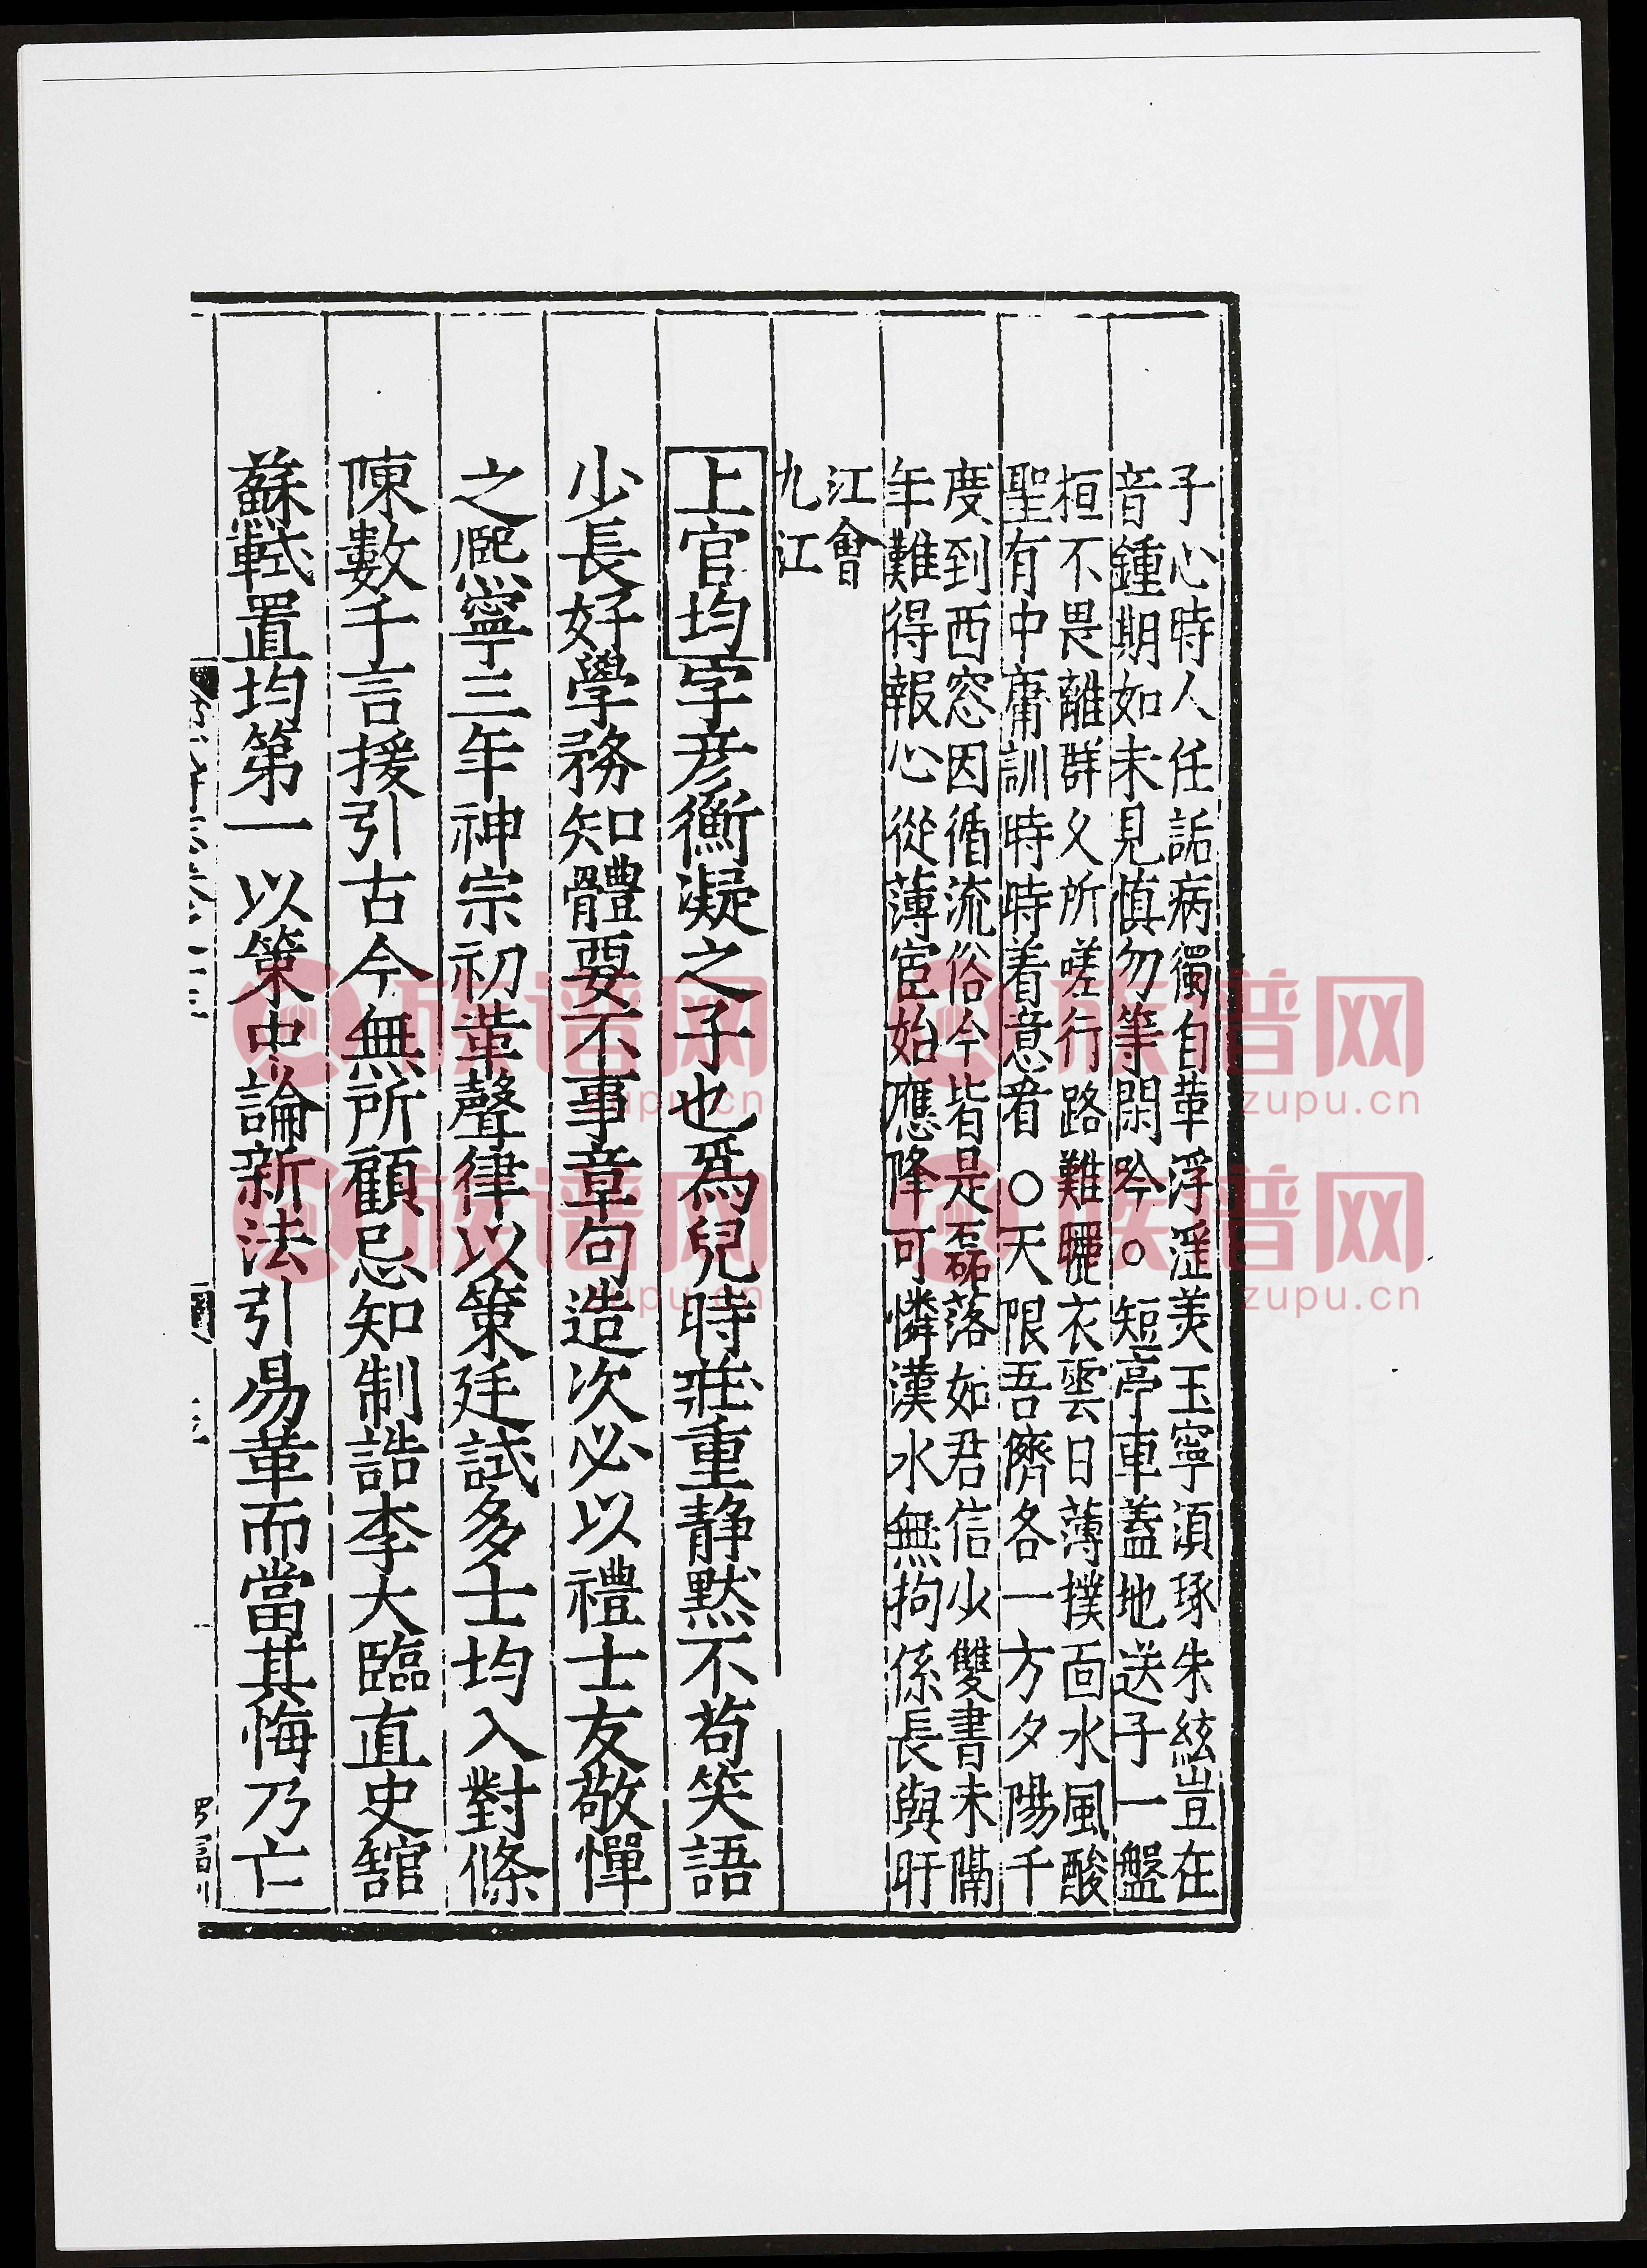 子心時人任詬病獨自華浮淫美玉寧湏琢朱絃豈在
音鍾期如未見慎勿等閑吟○短亭車蓋地送子一盤
桓不畏離群久所嗟行路難曬衣雲日薄撲面水風酸
聖有中庸訓時時着意看○天限吾儕各一方夕陽千
度到西窓因循流俗今皆是磊落如君信少雙書未隔
年難得報心從薄宦始應降可憐漢水無拘係長與盱
江會
九江
上官均字彦衡凝之子也爲兒時莊重静黙不苟笑語
少長好學務知體要不事章句造次必以禮士友敬憚
之熈寧三年神宗初革聲律以策廷試多士均入對條
陳數千言援引古今無所顧忌知制誥李大臨直史舘
蘇軾置均第一以策中論新法引易革而當其悔乃亡
族谱网
zupu.cn
族谱网
zupu.cn
族谱网
zupu.cn
族谱网
zupu.cn